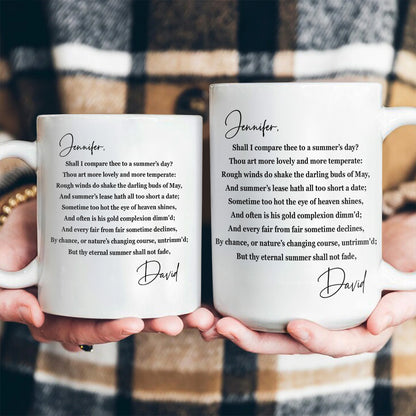 Jennifer,
Shall I compare thee to a summer's day?
Thou art more lovely and more temperate:
Rough winds do shake the darling buds of May,
And summer's lease hath all too short a date;
Sometime too hot the eye of heaven shines,
And often is his gold complexion dimm'd;
And every fair from fair sometime declines,
By chance, or nature's changing course, untrimm'd;
But thy eternal summer shall not fade,
David
Jennifer,
Shall I compare thee to a summer's day?
Thou art more lovely and more temperate:
Rough winds do shake the darling buds of May,
And summer's lease hath all too short a date;
Sometime too hot the eye of heaven shines,
And often is his gold complexion dimm'd;
And every fair from fair sometime declines,
By chance, or nature's changing course, untrimm'd;
But thy eternal summer shall not fade,
David